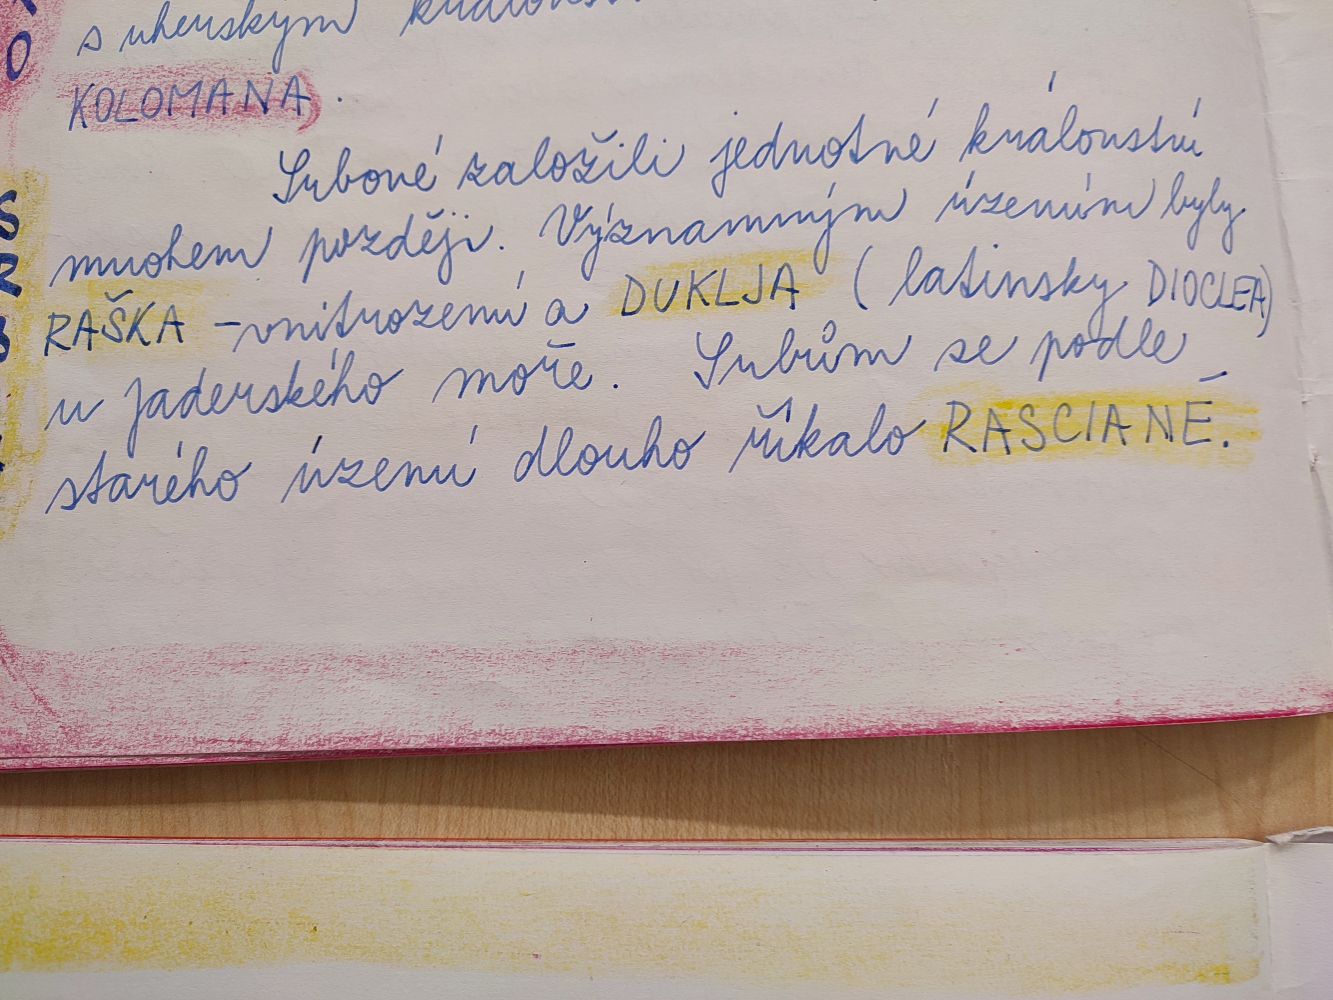 s uherským
KOLOMANA.
Srbové založili jednotné království
mnohem později. Významným územím byly
RAŠKA - vnitrozemí a DUKLJA (latinsky DIOCLEA)
u jaderského moře. Srbům se podle
starého území dlouho říkalo RASCIANÉ.